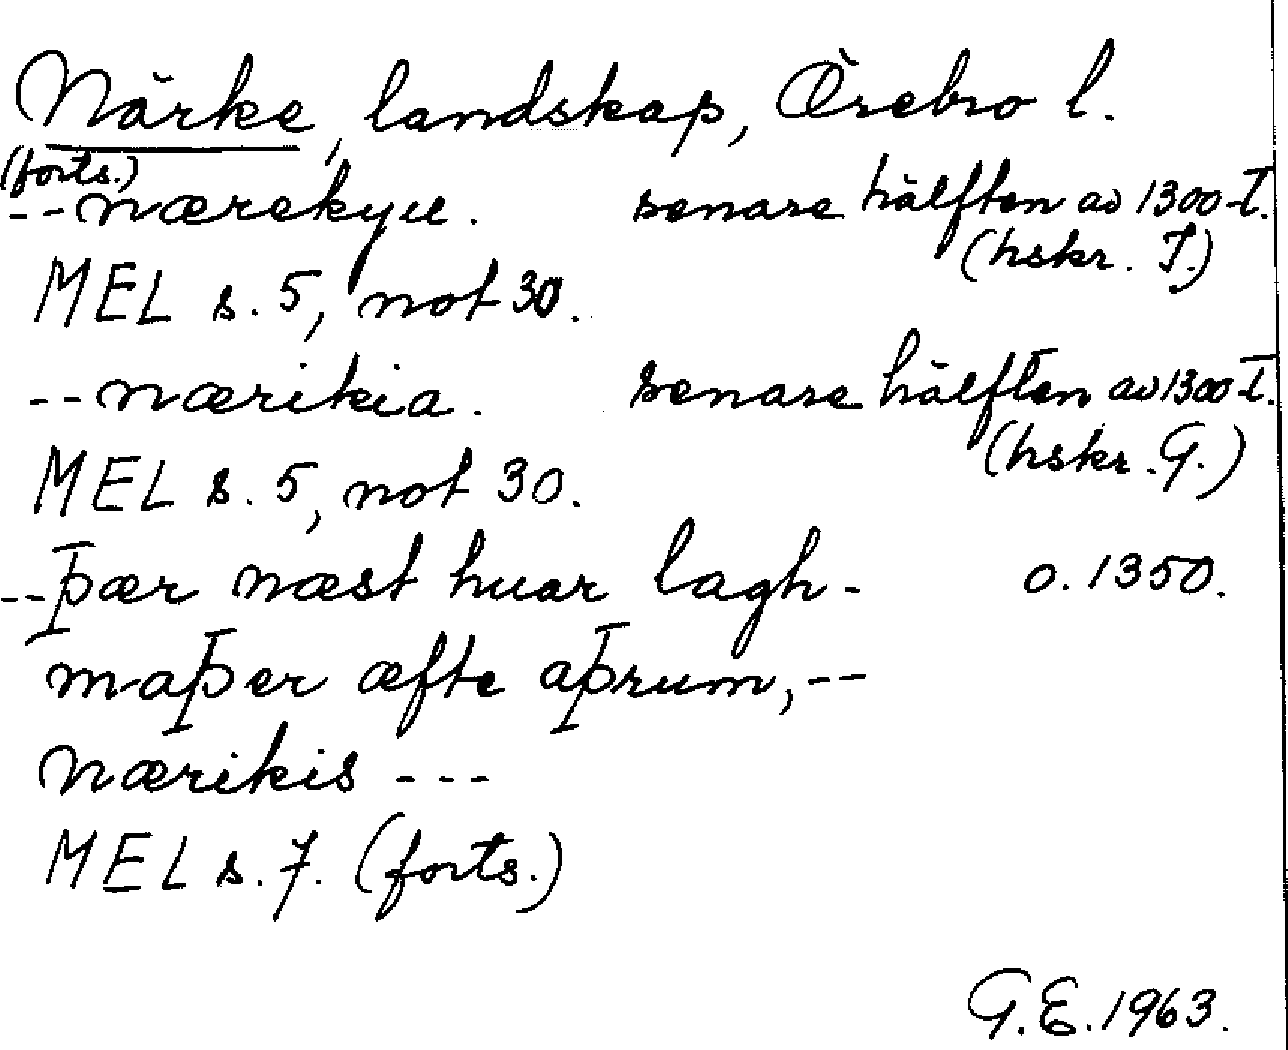 Närke, landskap, Örebro l.
(forts.)
--nærekyu. senare hälften av 1300-t.
(hskr. T.)
MEL s. 5, not 30.
--nærikia. senare hälften av 1300-t.
(hskr. G.)
MEL s. 5, not 30.
--þær næst huar lagh- o. 1350.
maþer æfte aþrum, --
Nærikis ---
MEL s. 7. (forts.)
G.E. 1963.